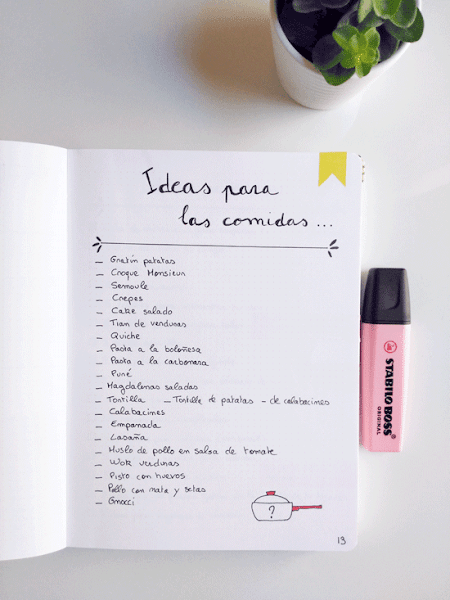 Ideas para
las comidas...
– Gratín patatas
– Croque Monsieur
– Semoule
– Crepes
– Cake salado
– Tian de verduras
– Quiche
– Pasta a la boloñesa
– Pasta a la carbonara
– Puré
– Magdalenas saladas
– Tortilla – Tortilla de patatas – de calabacines
– Calabacines
– Empanada
– Lasaña
– Muslo de pollo en salsa de tomate
– Wok verduras
– Pisto con huevos
– Pollo con nata y setas
– Gnocci
?
13
STABILO BOSS
ORIGINAL